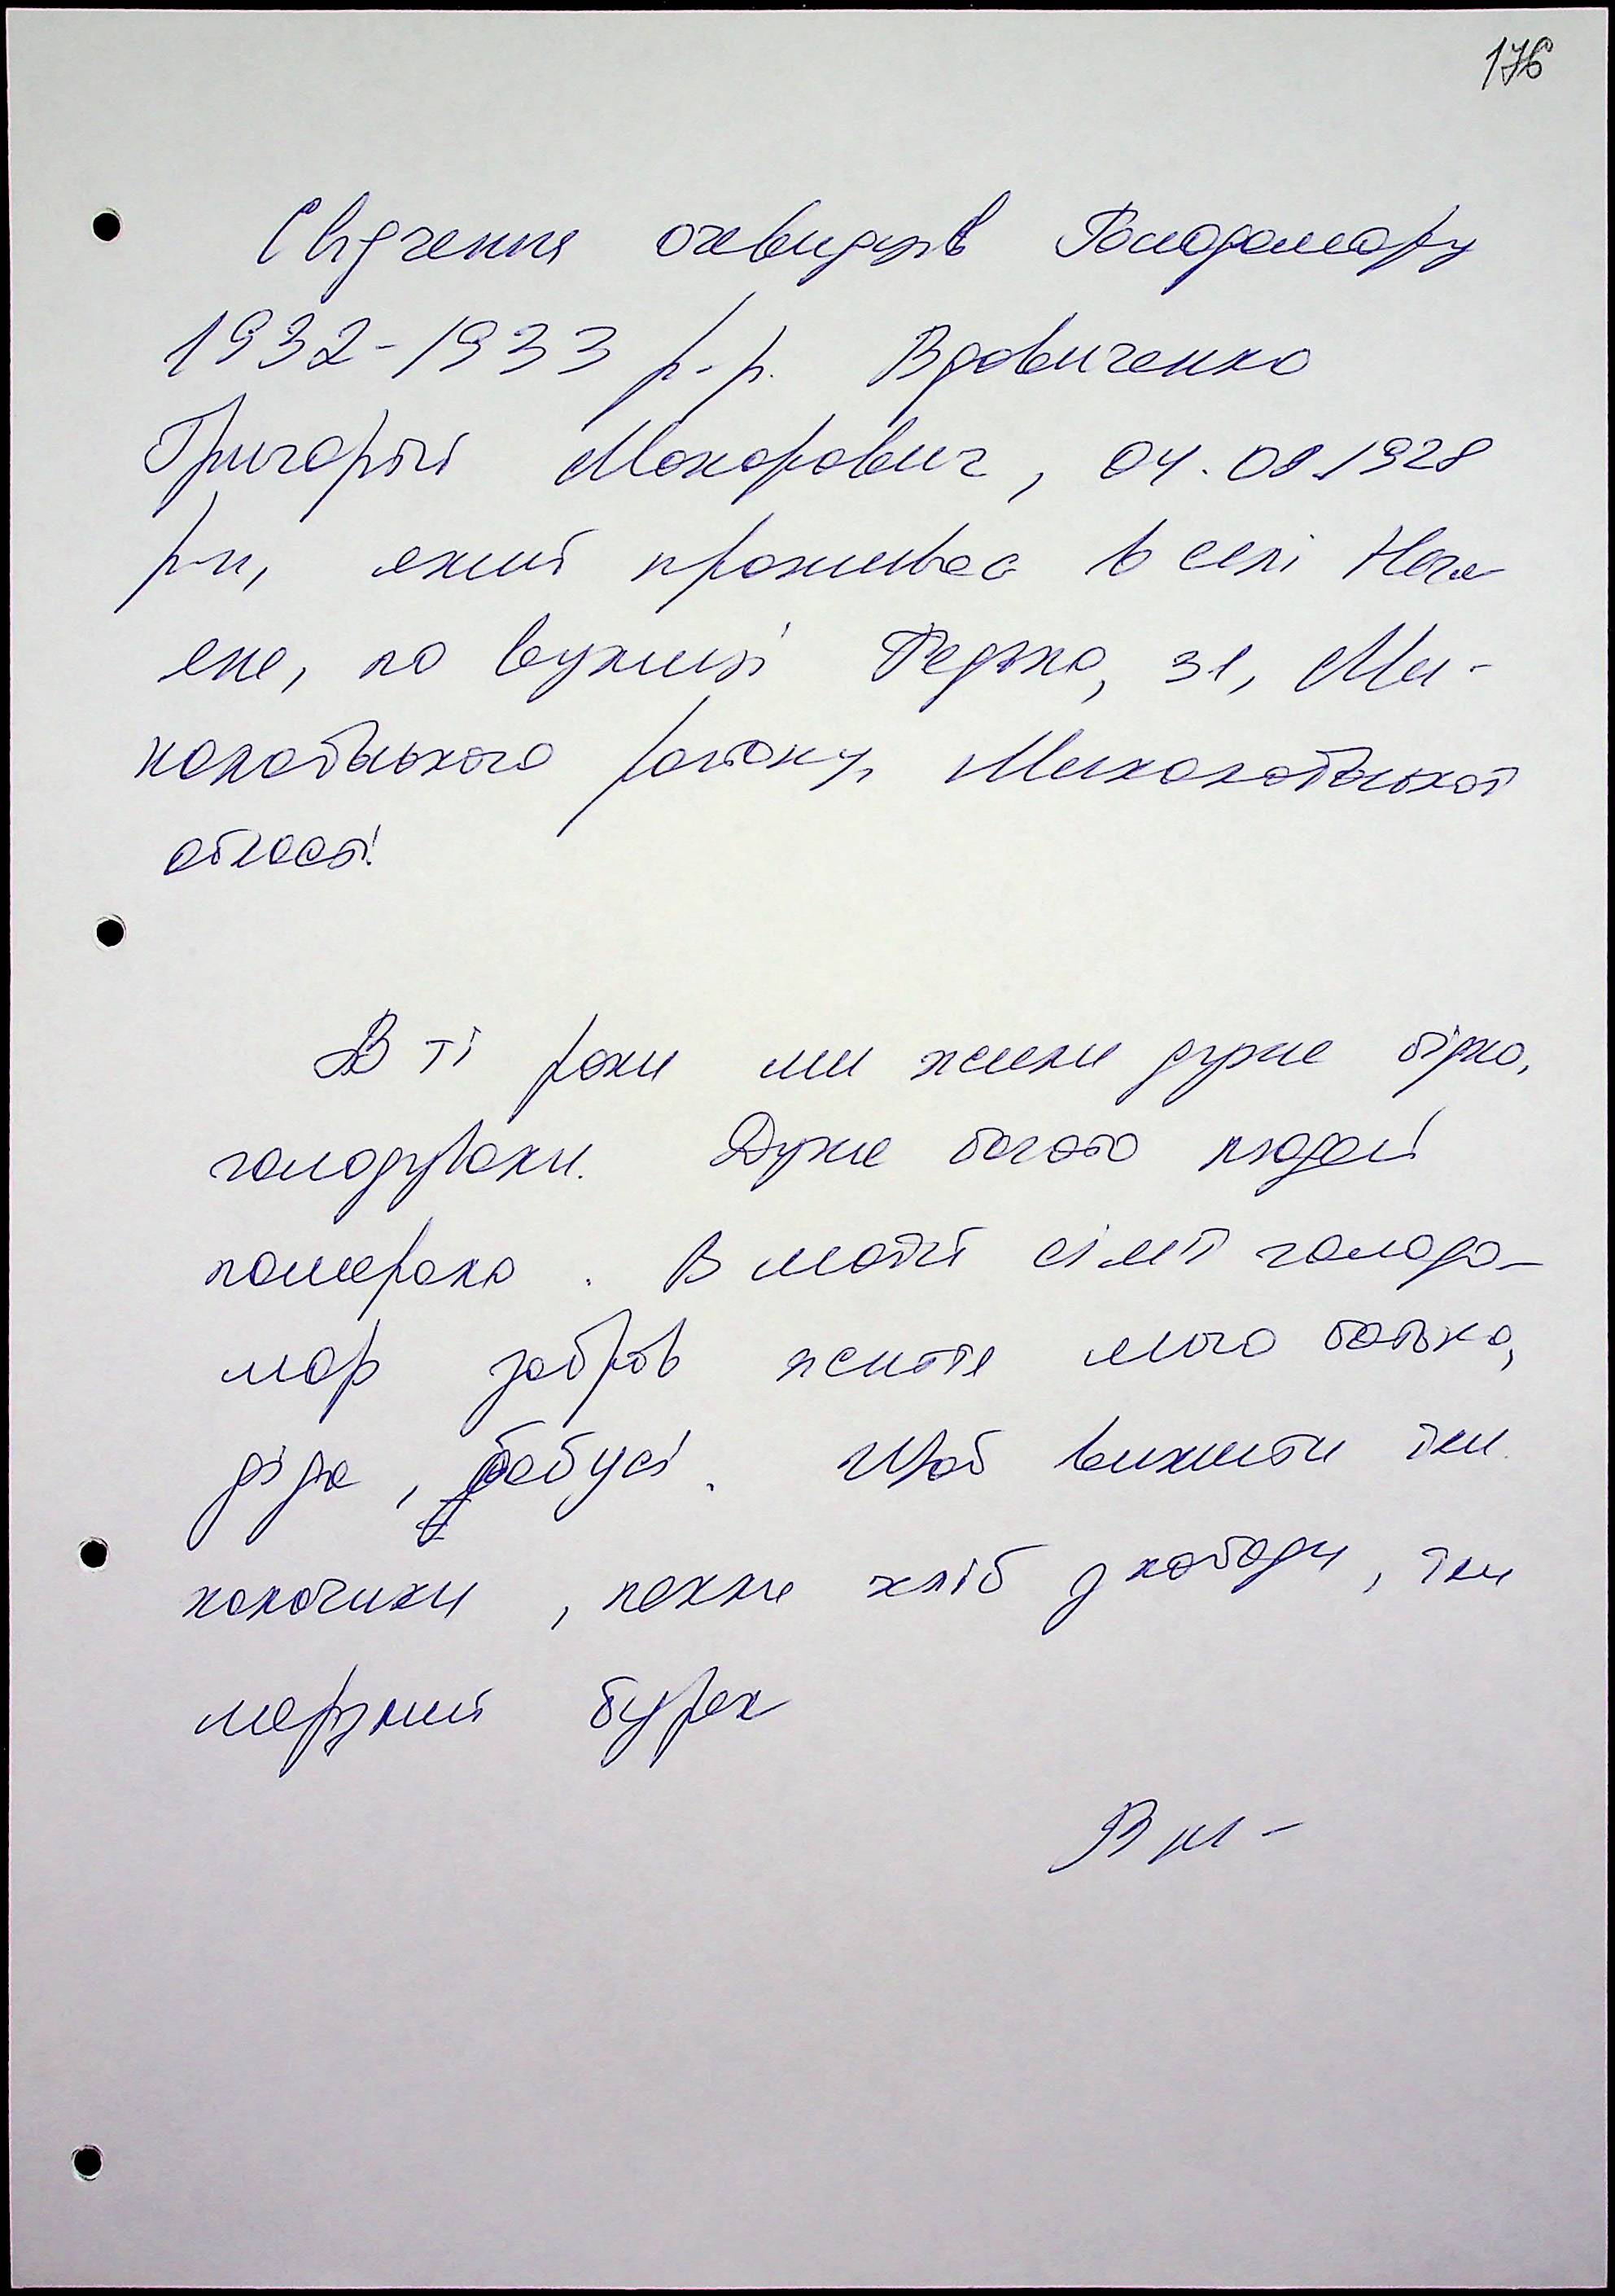 176
Свідчення очевидців Голодомору
1932-1933 р.р. Вдовиченко
Григорій Макарович, 04.08.1928
р.н, який проживає в селі Нечая
не, по вулиці Федька, 31, Ми-
колаївського району, Миколаївської
області.
В ті роки ми жили дуже бідно,
голодували. Дуже багато людей
померало. В моїй сім'ї голодо-
мор забрав життя мого батька,
діда, бабусі. Щоб вижити їли
калачики, пекли хліб з лободи, їли
мерзлий буряк